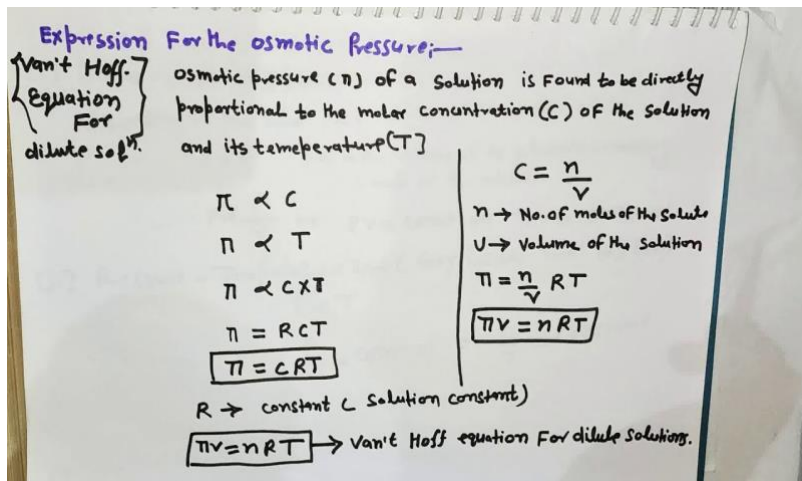 Expression For the Osmotic Pressure;—
Van't Hoff
Equation
For
dilute solⁿ.
Osmotic pressure (π) of a Solution is Found to be directly
proportional to the molar concuntration (C) of the Solution
and its temeperature (T]
π ∝ C
π ∝ T
π ∝ C×T
π = RCT
π = CRT
C = n/V
n → No. of moles of the Solute
V → Volume of the Solution
π = n/V RT
πV = nRT
R → constant ( Solution constant)
πV = nRT → Van't Hoff equation For dilute Solutions.